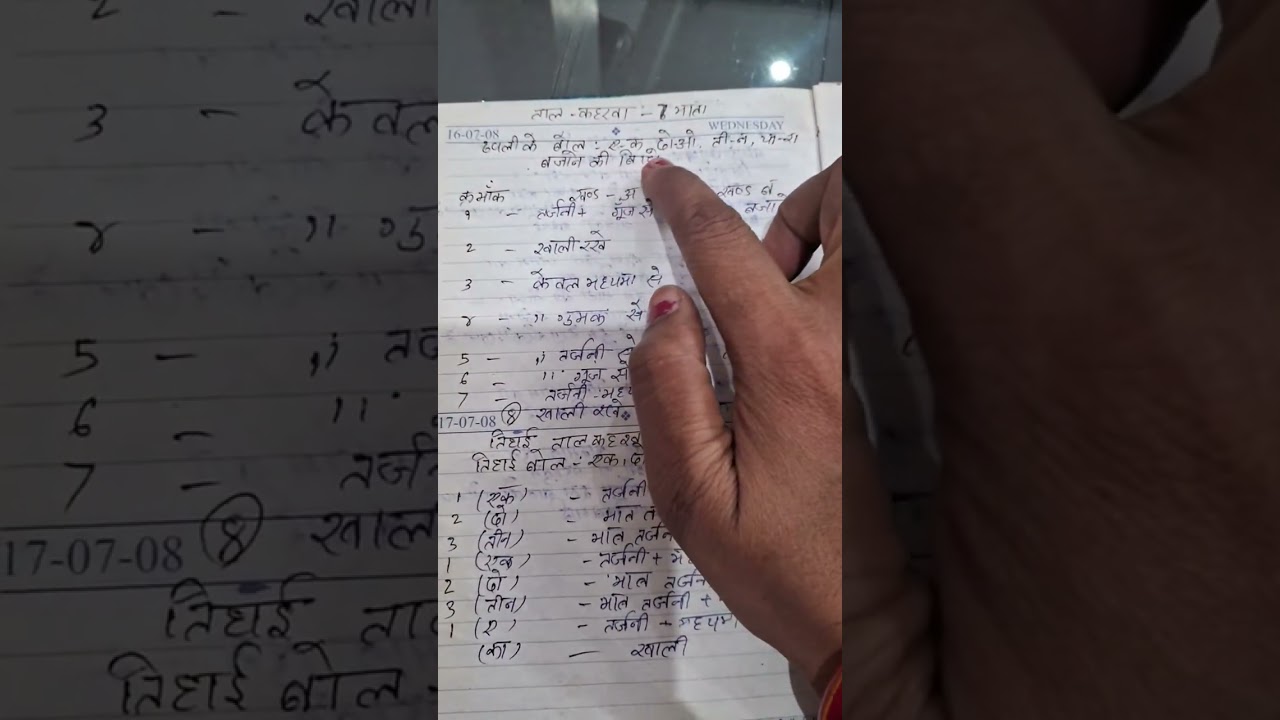 ताल - कहरवा :- 7 मात्रा
16-07-08 WEDNESDAY
ढपली के बोल : ए-क, दोओ, ती-न,
बजाने की
क्रमाँक खण्ड - अ खण्ड ब
१ - तर्जनी + गूँज से
2 - खाली रखे
3 - केवल मध्यमा से
४ - ,, गुमक से
5 - ,, तर्जनी से
6 - ,, गूँज से
7 - तर्जनी
17-07-08 8 खाली रखे
तिहाई ताल कहरवा
तिहाई बोल : एक,
1 (एक) - तर्जनी
2 (दो) - मात्र
3 (तीन) - मात्र तर्जनी
1 (एक) - तर्जनी +
2 (दो) - मात्र तर्जनी
3 (तीन) - मात्र तर्जनी +
1 (ए) - तर्जनी + मध्यमा
(का) - खाली